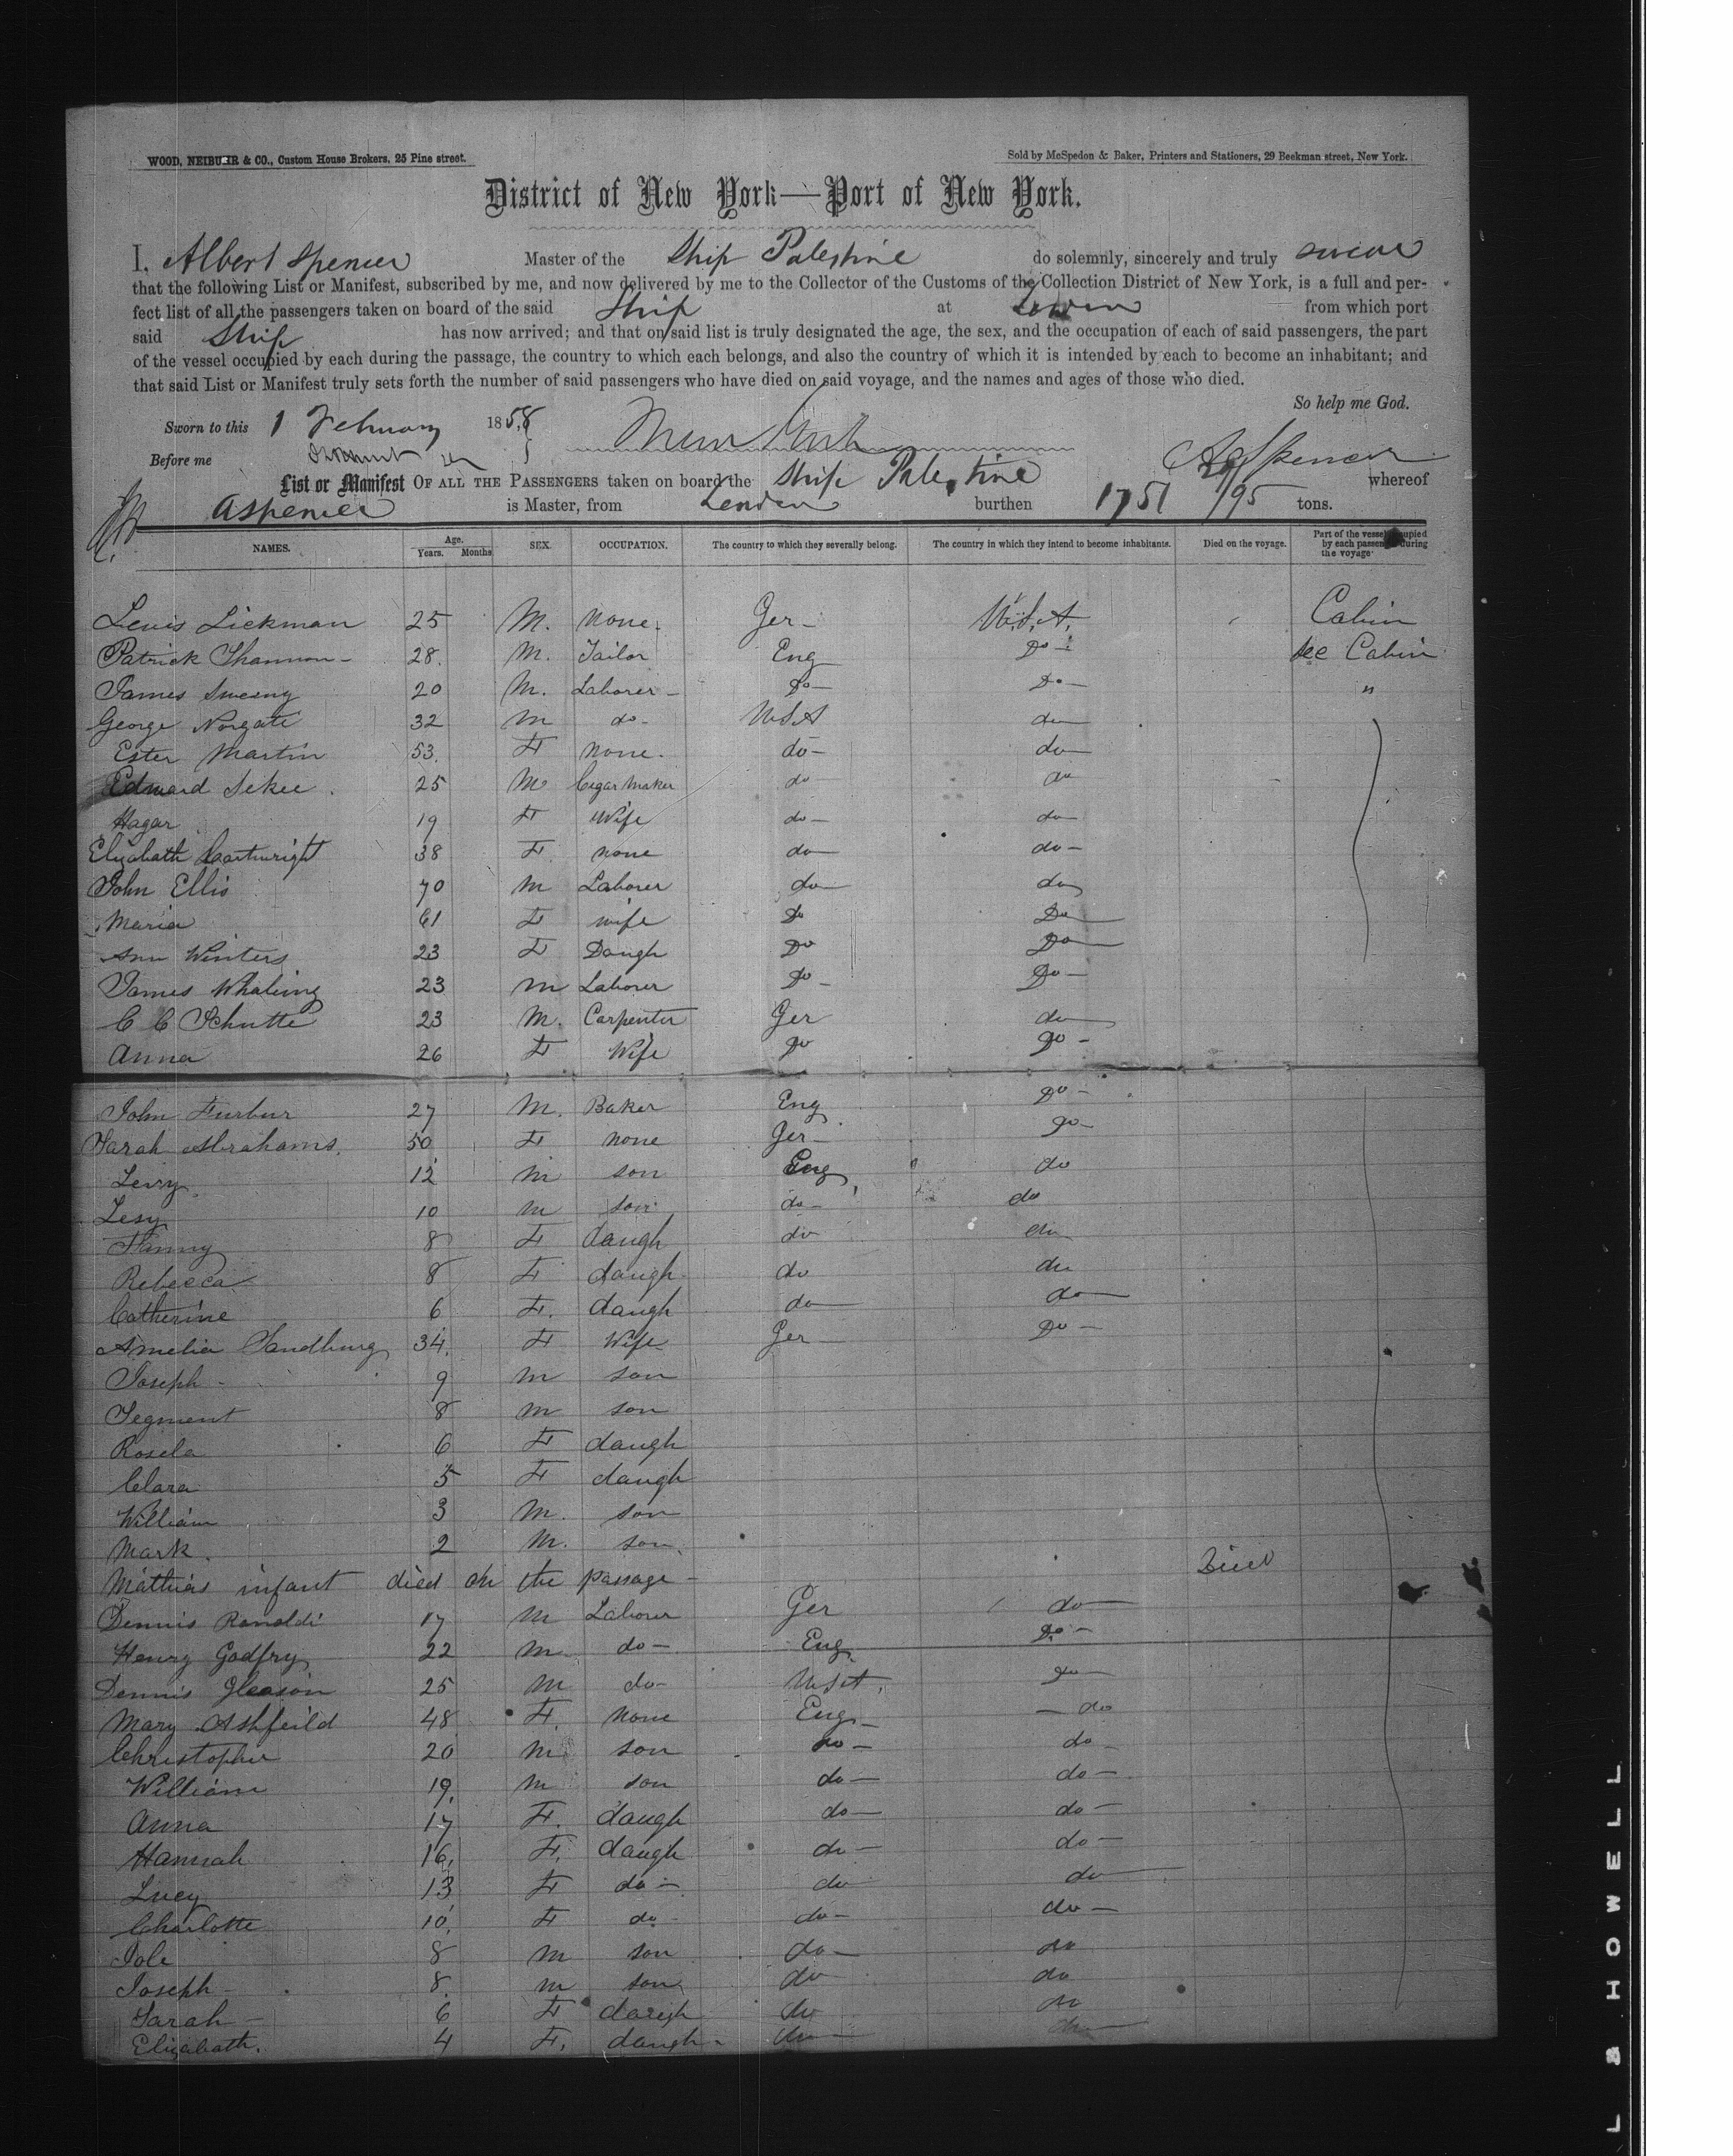 WOOD, NEIBUHR & CO., Custom House Brokers, 25 Pine street.
Sold by McSpedon & Baker, Printers and Stationers, 29 Beekman street, New York.
District of New York—Port of New York.
I, Albert Spencer Master of the Ship Palestine do solemnly, sincerely and truly swear
that the following List or Manifest, subscribed by me, and now delivered by me to the Collector of the Customs of the Collection District of New York, is a full and per-
fect list of all the passengers taken on board of the said Ship at London from which port
said Ship has now arrived; and that on said list is truly designated the age, the sex, and the occupation of each of said passengers, the part
of the vessel occupied by each during the passage, the country to which each belongs, and also the country of which it is intended by each to become an inhabitant; and
that said List or Manifest truly sets forth the number of said passengers who have died on said voyage, and the names and ages of those who died.
So help me God.
Sworn to this 1 February 1858
Before me
A Spencer
List or Manifest OF ALL THE PASSENGERS taken on board the Ship Palestine whereof
A Spencer is Master, from London burthen 1751 /95 tons.
NAMES. Age. Years. Months SEX. OCCUPATION. The country to which they severally belong. The country in which they intend to become inhabitants. Died on the voyage. Part of the vessel occupied by each passenger during the voyage
Lewis Lickman 25 M. none. Ger- U.S.A. Cabin
Patrick Shannon- 28. M. Tailor Eng Do- Sec Cabin
James Sweeny 20 M. Laborer- Do- Do- "
George Norgate 32 M do- USA do
Ester Martin 53. F none. do- do
Edward Sekee. 25 M Cigar Maker do do
Hagar 19 F Wife do- do
Elizabath Cartwright 38 F. none do do-
John Ellis 70 M Laborer do do
Maria 61 F wife Do Do
Ann Winters 23 F Daugh Do Do
James Whaling 23 M Laborer Do- Do-
C C Schutte 23 M. Carpenter Ger do
Anna 26 F Wife Do Do-
John Furbur 27 M. Baker Eng Do-
Sarah Abrahams. 50 F none Ger- Do-
Levy 12 M son Eng do
Lesy 10 M son do- do
Fanny 8 F daugh do do
Rebecca 8 F daugh do do
Catherine 6 F. daugh do do
Amelia Sandburg 34. F Wife Ger Do-
Joseph- 9 M son
Segment 8 M son
Rosela 6 F daugh
Clara 5 F daugh
William 3 M. son
Mark. 2 M. son.
Mathias infant died on the passage- Died
Dennis Ronoldi 17 M Laborer Ger do
Henry Godfry 22 M do- Eng Do-
Dennis Gleason 25 M do- USA. do
Mary Ashfeild 48 F. none Eng- do
Christopher 20 M son do- do-
William 19. M son do- do-
Anna 17 F. daugh do- do-
Hannah 16. F. daugh do- do-
Lucy 13 F do- do do
Charlotte 10. F do- do- do-
Iole 8 M son do- do
Joseph- 8. M son do do
Sarah- 6 F daugh do do
Elizabath. 4 F. daugh- do do
L & HOWELL